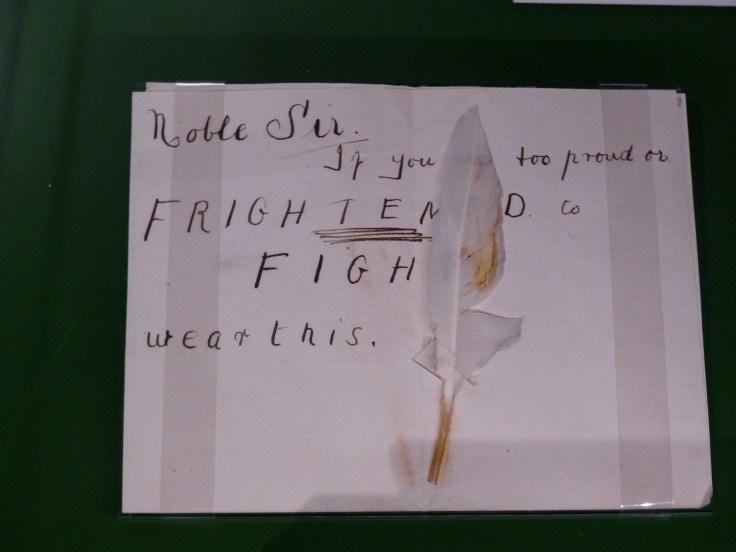 Noble Sir.
If you too proud or
FRIGHTEN D. to
FIGH
wear this.